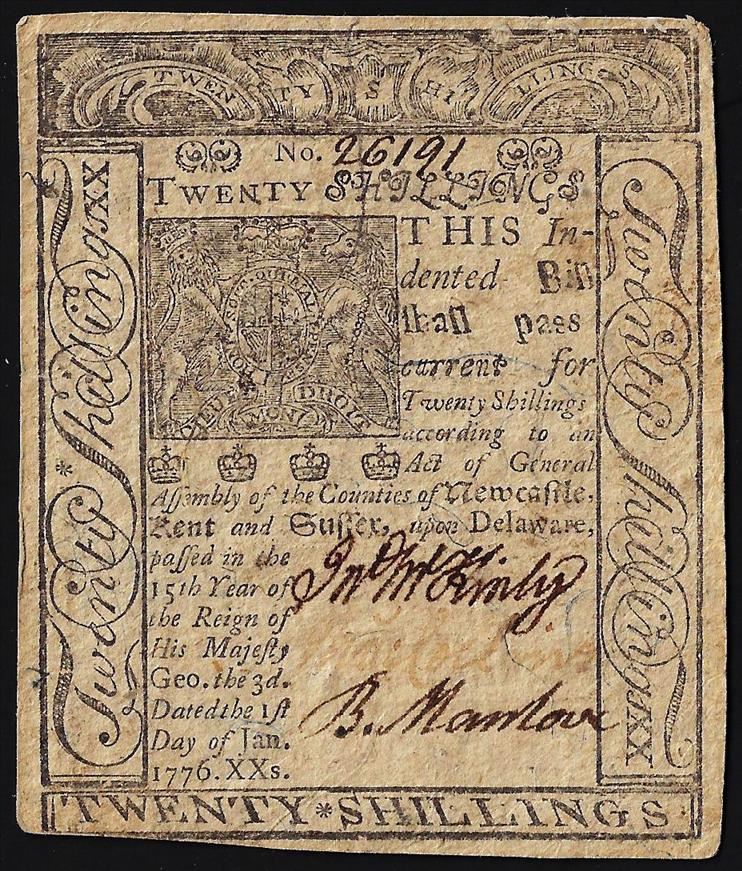 TWENTY SHILLINGS
No. 26191
TWENTY SHILLINGS
THIS In-
dented Bill
ſhall paſs
current for
Twenty Shillings
according to an
Act of General
Aſſembly of the Counties of Newcaſtle,
Kent and Suſſex, upon Delaware,
paſſed in the
15th Year of
the Reign of
His Majeſty
Geo. the 3d.
Dated the 1ſt
Day of Jan.
1776. XXs.
HONI SOIT QUI MAL Y PENSE
DIEU ET MON DROIT
Jno McKinly
B. Manlove
Twenty Shillings XX
Twenty Shillings XX
TWENTY * SHILLINGS